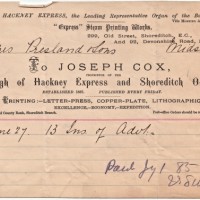 HACKNEY EXPRESS, the Leading Representative Organ of the Bo
"Express" Steam Printing Works,
229, Old Street, Shoreditch, E.C.,
And 62, Devonshire Road,
Mids
To JOSEPH COX,
PROPRIETOR OF THE
gh of Hackney Express and Shoreditch O
ESTABLISHED 1857. PUBLISHED EVERY FRIDAY.
PRINTING:—LETTER-PRESS, COPPER-PLATE, LITHOGRAPHIC
EXCELLENCE—ECONOMY—EXPEDITION.
County Bank, Shoreditch Branch.
ne 27. 13 Ins of Advt.
Paid Jy 1 85